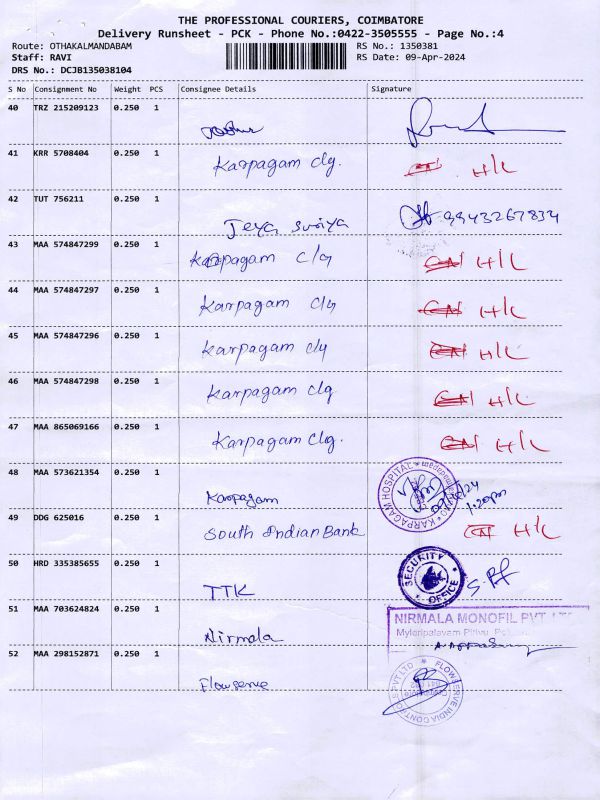 THE PROFESSIONAL COURIERS, COIMBATORE
Delivery Runsheet - PCK - Phone No.:0422-3505555 - Page No.:4
Route: OTHAKALMANDABAM RS No.: 1350381
Staff: RAVI RS Date: 09-Apr-2024
DRS No.: DCJB135038104
S No Consignment No Weight PCS Consignee Details Signature
40 TRZ 215209123 0.250 1
41 KRR 5708404 0.250 1
Karpagam clg. H/L
42 TUT 756211 0.250 1
Jeya suriya 9943267834
43 MAA 574847299 0.250 1
Karpagam clg CN H/L
44 MAA 574847297 0.250 1
Karpagam clg CN H/L
45 MAA 574847296 0.250 1
Karpagam clg CN H/L
46 MAA 574847298 0.250 1
Karpagam clg CN H/L
47 MAA 865069166 0.250 1
Karpagam clg. CN H/L
48 MAA 573621354 0.250 1
Karpagam KARPAGAM HOSPITAL 1:20pm
49 DDG 625016 0.250 1
South Indian Bank CN H/L
50 HRD 335385655 0.250 1
TTK SECURITY OFFICE
51 MAA 703624824 0.250 1
Nirmala NIRMALA MONOFIL PVT LTD
Myleripalayam Pirivu
52 MAA 298152871 0.250 1
Flowserve FLOWSERVE INDIA CONTROLS PVT LTD